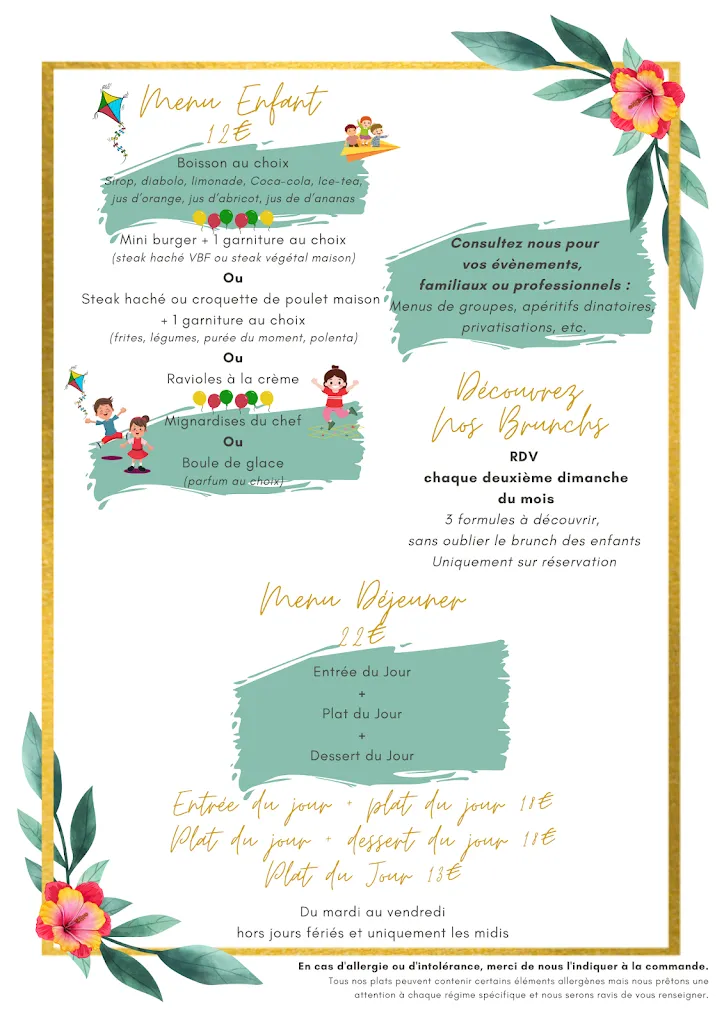 Menu Enfant
12€
Boisson au choix
Sirop, diabolo, limonade, Coca-cola, Ice-tea,
jus d'orange, jus d'abricot, jus de d'ananas
Mini burger + 1 garniture au choix
(steak haché VBF ou steak végétal maison)
Ou
Steak haché ou croquette de poulet maison
+ 1 garniture au choix
(frites, légumes, purée du moment, polenta)
Ou
Ravioles à la crème
Mignardises du chef
Ou
Boule de glace
(parfum au choix)
Consultez nous pour
vos évènements,
familiaux ou professionnels :
Menus de groupes, apéritifs dinatoires,
privatisations, etc.
Découvrez
Nos Brunchs
RDV
chaque deuxième dimanche
du mois
3 formules à découvrir,
sans oublier le brunch des enfants
Uniquement sur réservation
Menu Déjeuner
22€
Entrée du Jour
+
Plat du Jour
+
Dessert du Jour
Entrée du jour + plat du jour 18€
Plat du jour + dessert du jour 18€
Plat du Jour 13€
Du mardi au vendredi
hors jours fériés et uniquement les midis
En cas d'allergie ou d'intolérance, merci de nous l'indiquer à la commande.
Tous nos plats peuvent contenir certains éléments allergènes mais nous prêtons une
attention à chaque régime spécifique et nous serons ravis de vous renseigner.